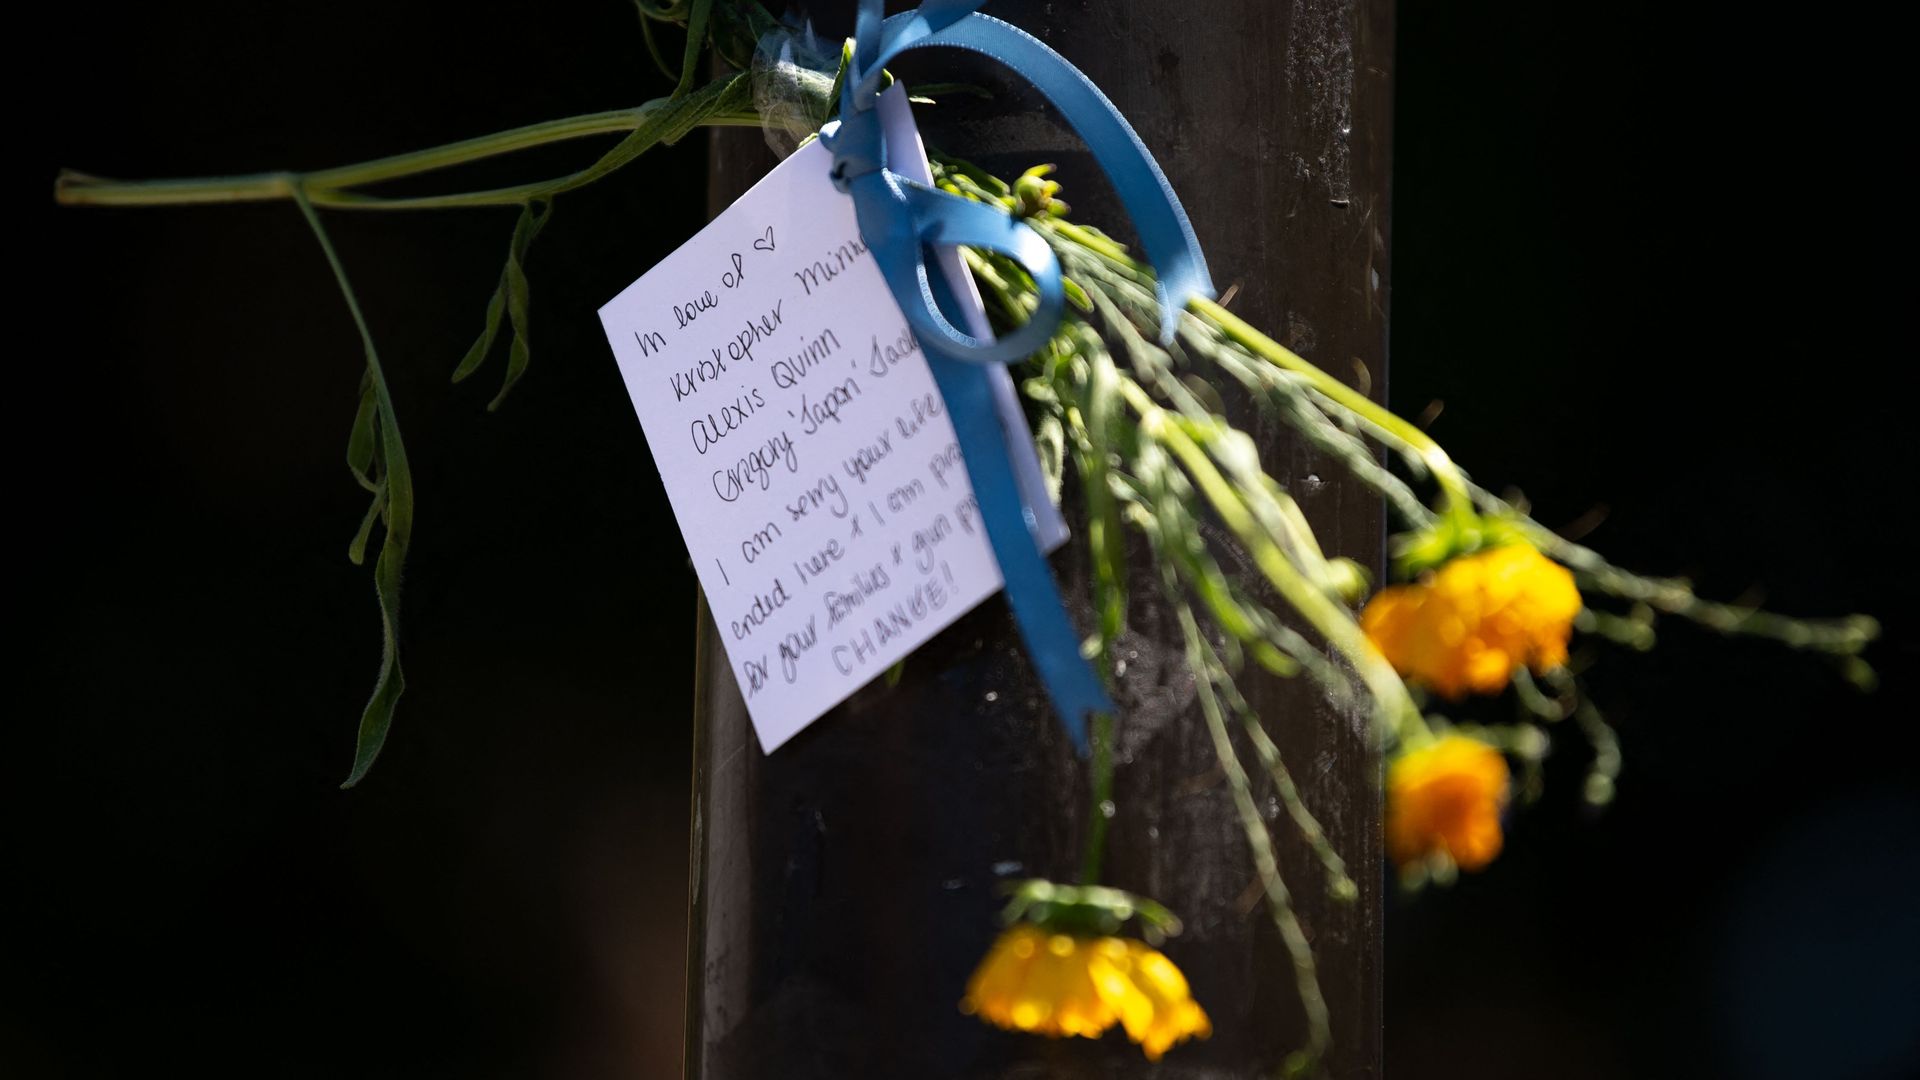 In love of ♡
Kristopher Minn
Alexis Quinn
Gregory 'Japan' Jack
I am sorry your life
ended here & I am pra
for your families & gun p
CHANGE!